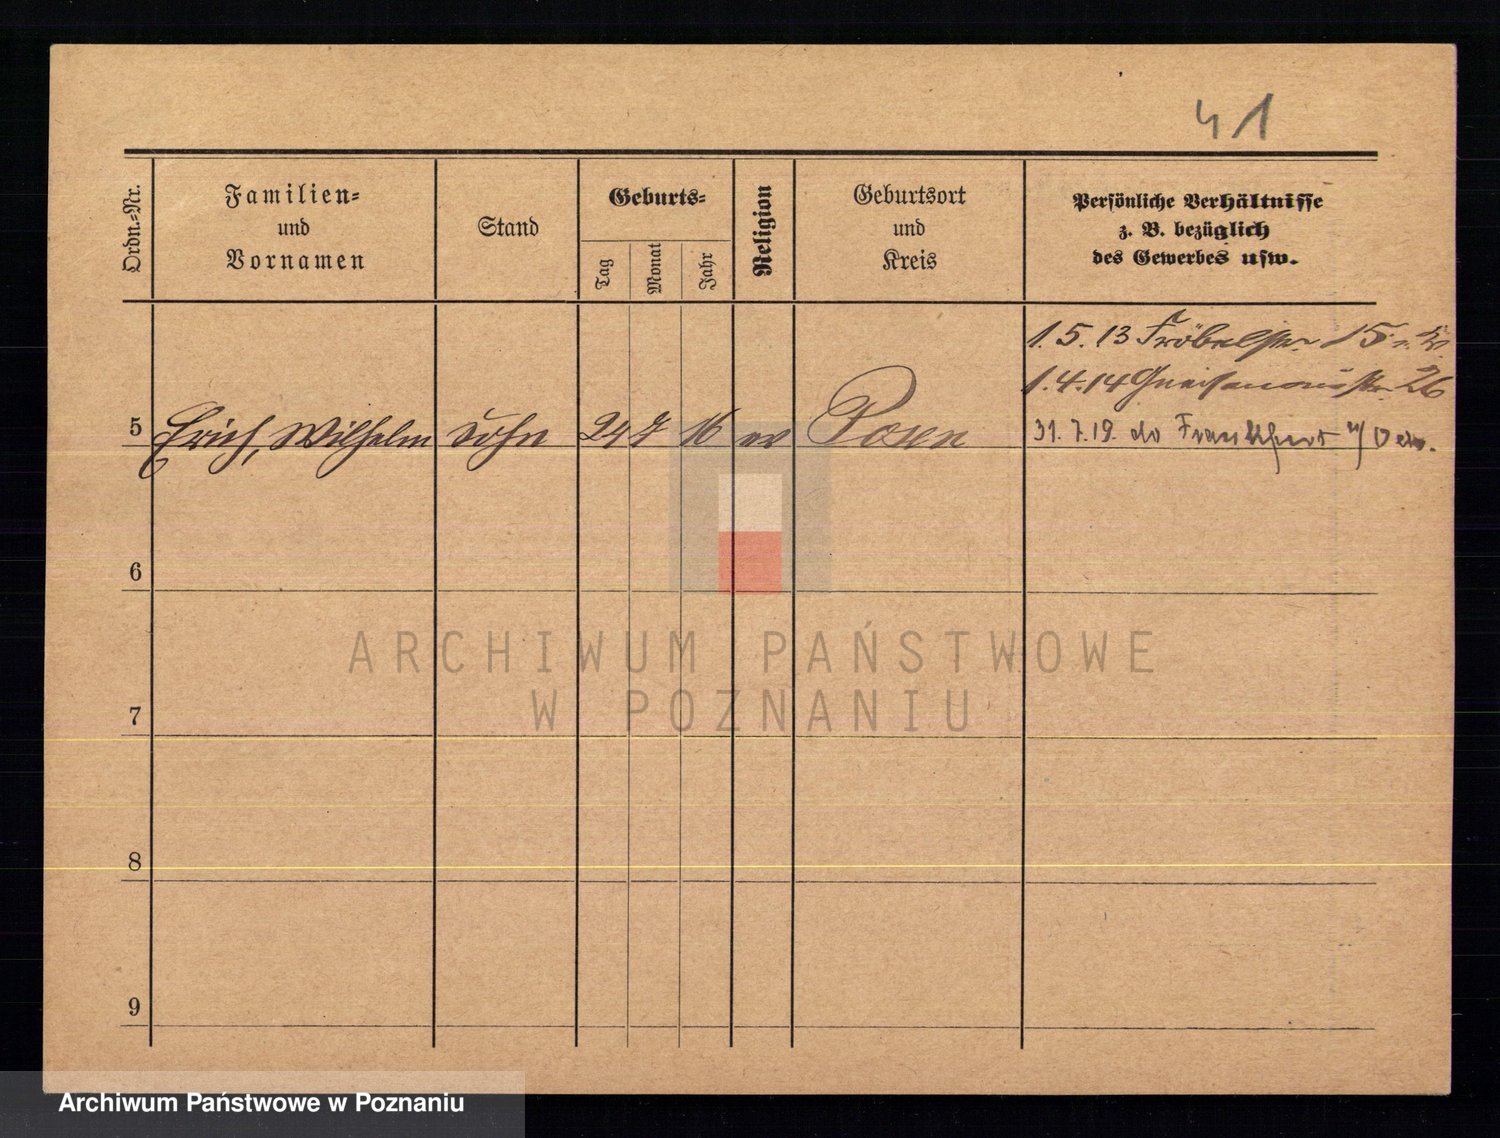 41
Ordn.-Nr.
Familien-
und
Vornamen
Stand
Geburts-
Tag
Monat
Jahr
Religion
Geburtsort
und
Kreis
Persönliche Verhältnisse
z. B. bezüglich
des Gewerbes usw.
1. 5. 13 Fröbelstr. 15
1. 4. 14 Gneisenaustr. 26
5 Erich, Wilhelm Sohn 24 7 16 ev Posen 31. 7. 19. do Frankfurt a/Oder.
6
7
8
9
ARCHIWUM PAŃSTWOWE
W POZNANIU
Archiwum Państwowe w Poznaniu